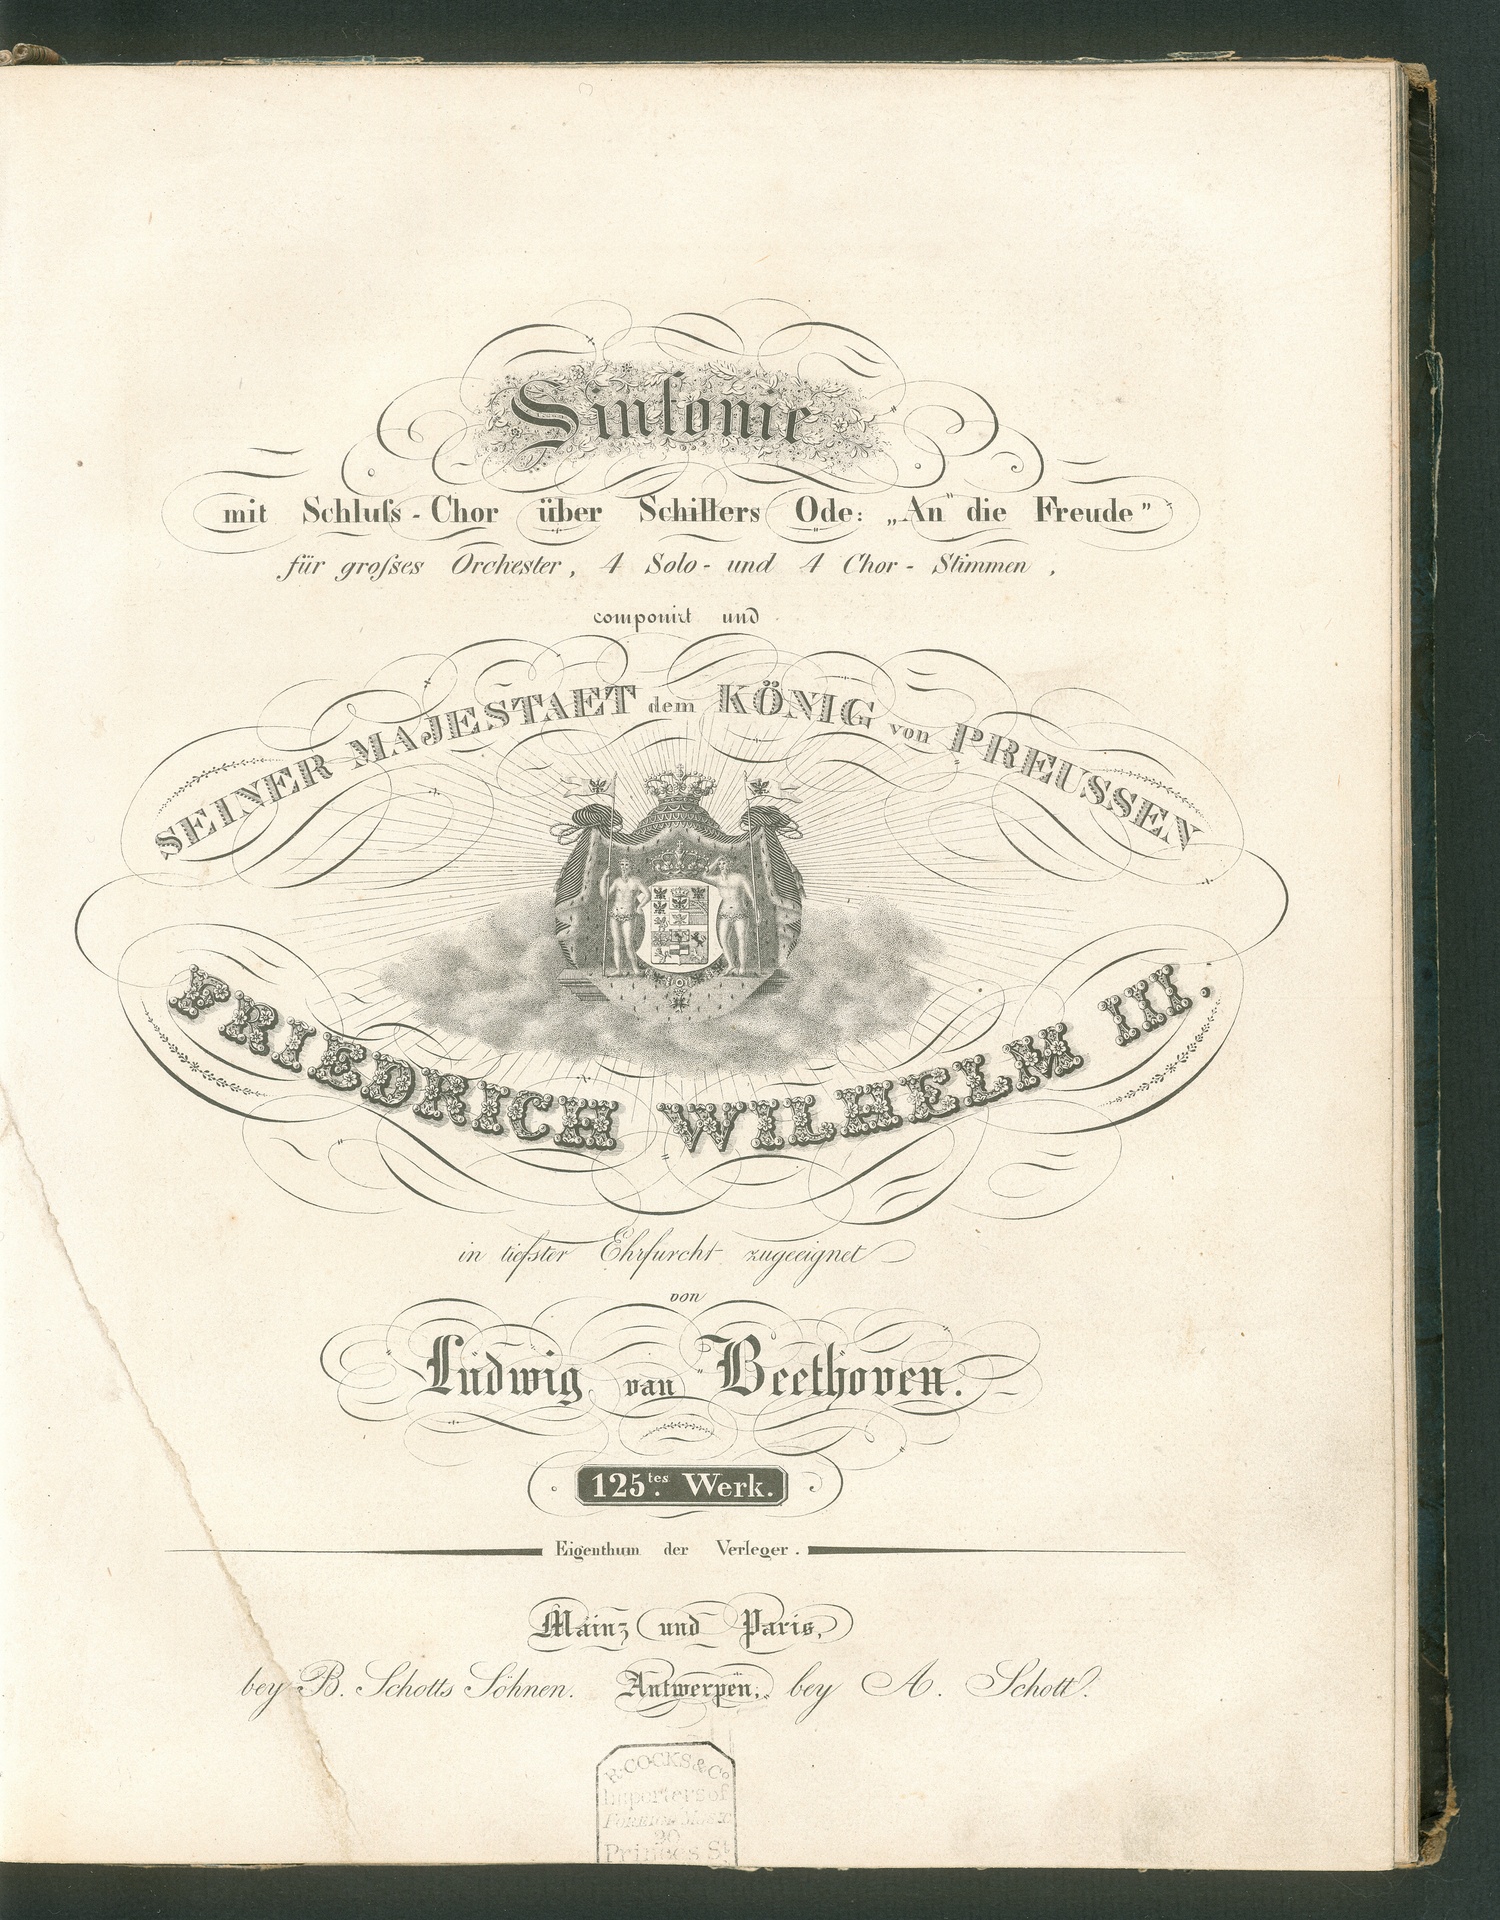 Sinfonie
mit Schluſs-Chor über Schillers Ode: „An die Freude”
für groſses Orchester, 4 Solo- und 4 Chor-Stimmen,
componirt und
SEINER MAJESTAET dem KÖNIG von PREUSSEN
FRIEDRICH WILHELM III.
in tiefster Ehrfurcht zugeeignet
von
Ludwig van Beethoven.
125tes. Werk.
Eigenthum der Verleger.
Mainz und Paris,
bey B. Schotts Söhnen. Antwerpen, bey A. Schott.
R. COCKS & Co
Importers of
FOREIGN MUSIC
20
Princes St